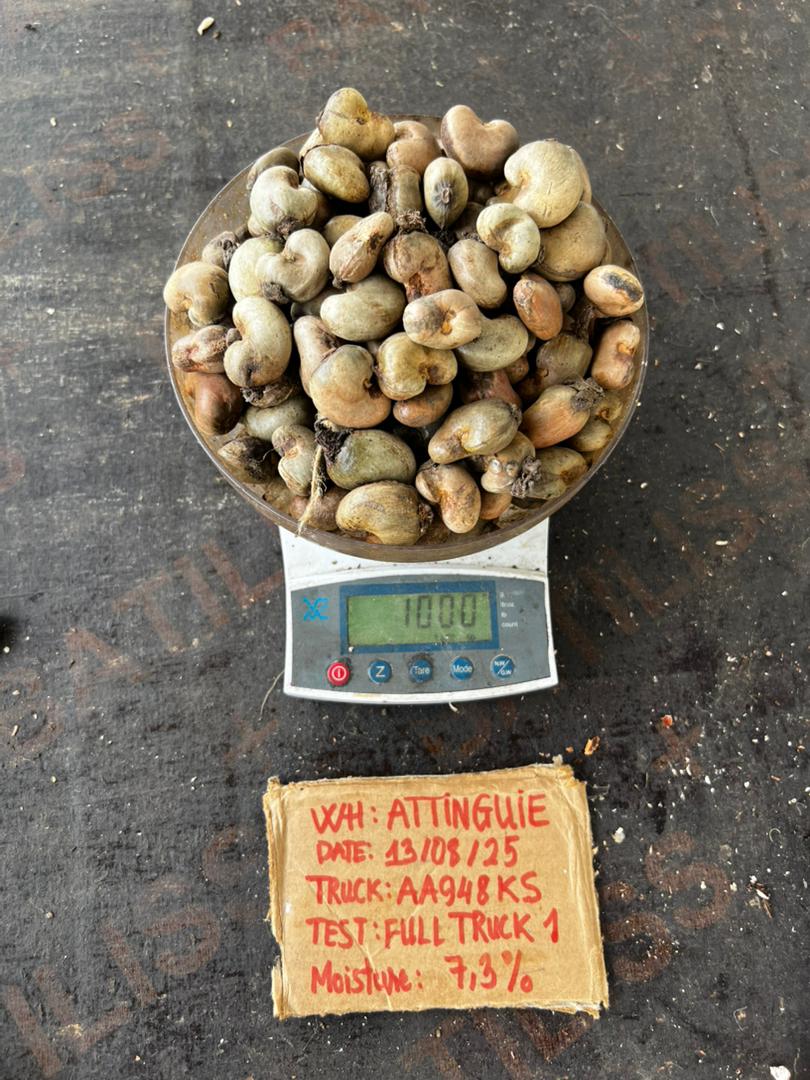 1000
g
lb
count
Z
Tare
Mode
N.W/G.W
WH: ATTINGUIE
DATE: 13/08/25
TRUCK: AA948KS
TEST: FULL TRUCK 1
Moisture: 7,3%